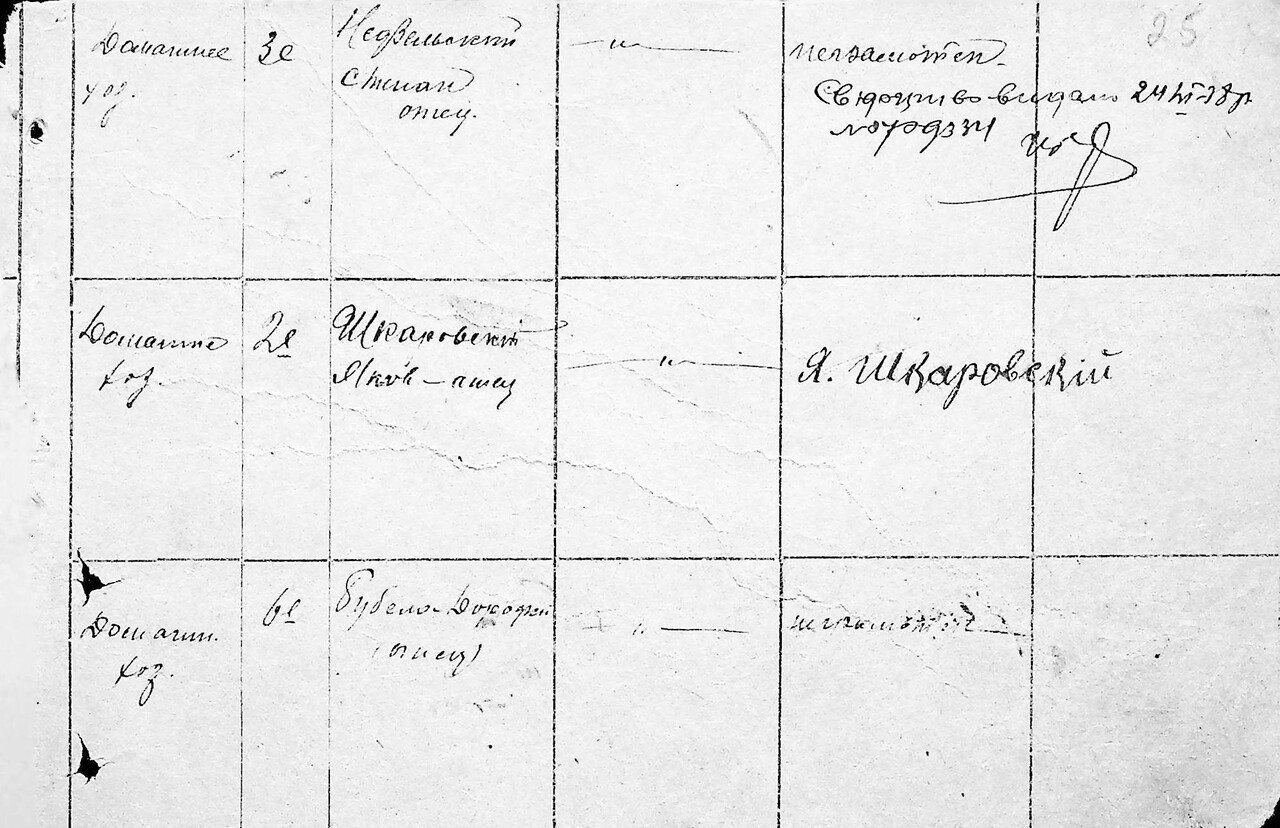 25
Домашнее
хоз.
3е
Недзельский
Степан
отец.
— " —
неграмотен.
Свидоцтво видано 24 VI-38 р
Домашне
хоз.
2е
Шкаровский
Яков – отец
— " —
Я. Шкаровскій
Домашн.
хоз.
6е
Бубела
(отец)
— " —
неграмотен